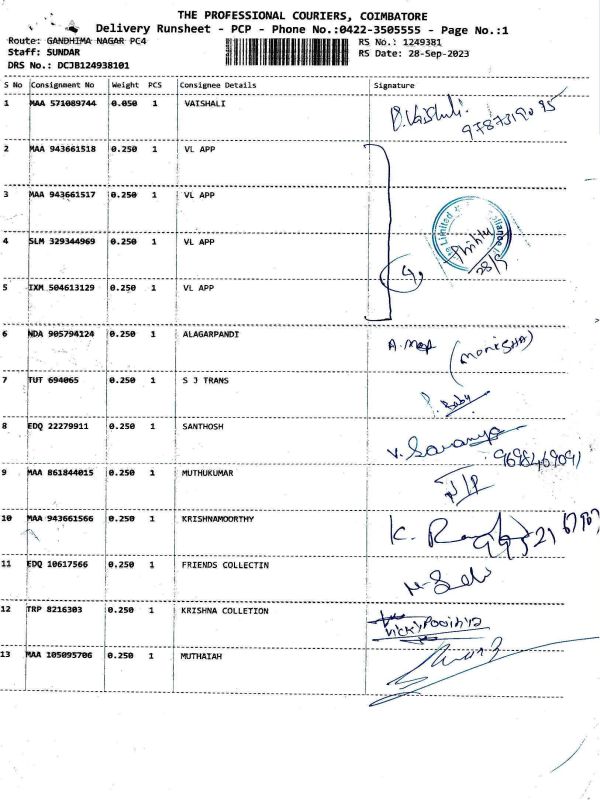 THE PROFESSIONAL COURIERS, COIMBATORE
Delivery Runsheet - PCP - Phone No.:0422-3505555 - Page No.:1
Route: GANDHIMA NAGAR PC4 RS No.: 1249381
Staff: SUNDAR RS Date: 28-Sep-2023
DRS No.: DCJB124938101
S No Consignment No Weight PCS Consignee Details Signature
1 MAA 571089744 0.050 1 VAISHALI
9787319095
2 MAA 943661518 0.250 1 VL APP
3 MAA 943661517 0.250 1 VL APP
4 SLM 329344969 0.250 1 VL APP
28/9
5 IXM 504613129 0.250 1 VL APP
6 NDA 905794124 0.250 1 ALAGARPANDI (MONISHA)
7 TUT 694065 0.250 1 S J TRANS
Baby
8 EDQ 22279911 0.250 1 SANTHOSH V. Saranya
9698469091
9 MAA 861844015 0.250 1 MUTHUKUMAR
10 MAA 943661566 0.250 1 KRISHNAMOORTHY
11 EDQ 10617566 0.250 1 FRIENDS COLLECTIN
12 TRP 8216303 0.250 1 KRISHNA COLLETION
13 MAA 105095706 0.250 1 MUTHAIAH